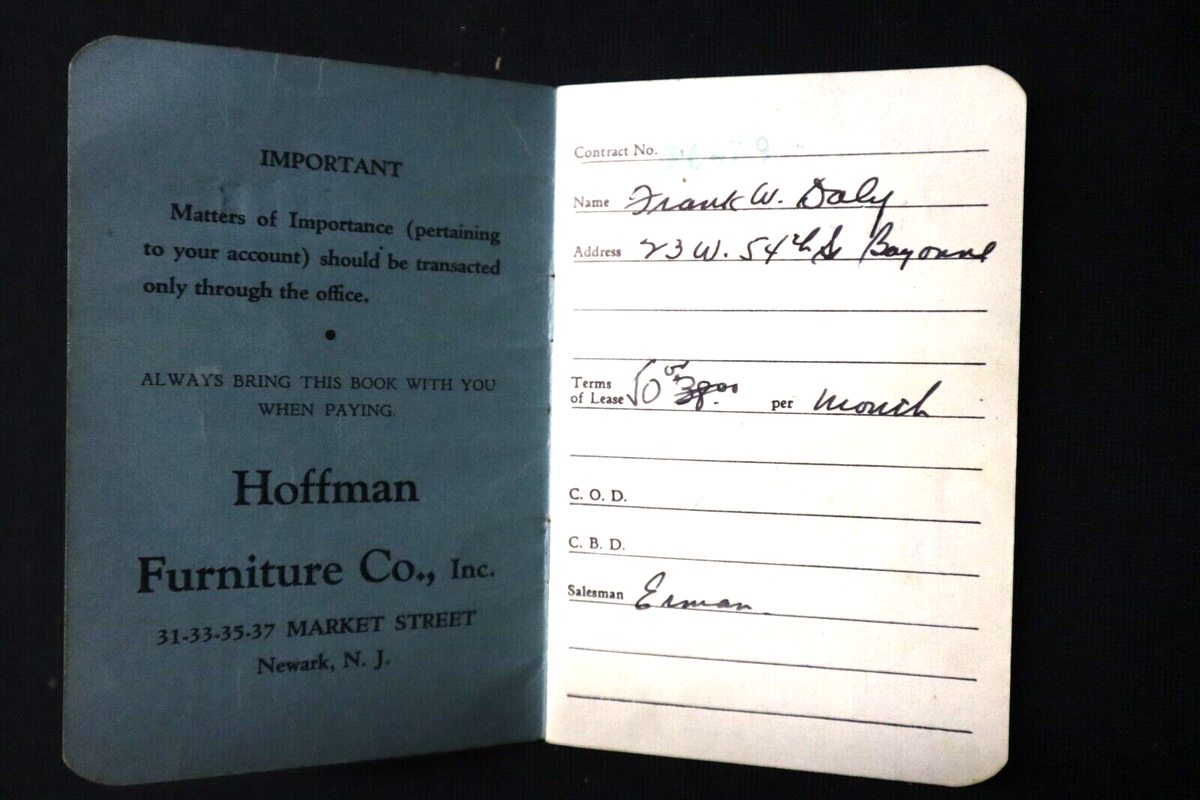 IMPORTANT
Matters of Importance (pertaining
to your account) should be transacted
only through the office.
•
ALWAYS BRING THIS BOOK WITH YOU
WHEN PAYING.
Hoffman
Furniture Co., Inc.
31-33-35-37 MARKET STREET
Newark, N. J.
Contract No.
Name Frank W. Daly
Address 23 W. 54th St Bayonne
Terms
of Lease per month
C. O. D.
C. B. D.
Salesman Erman